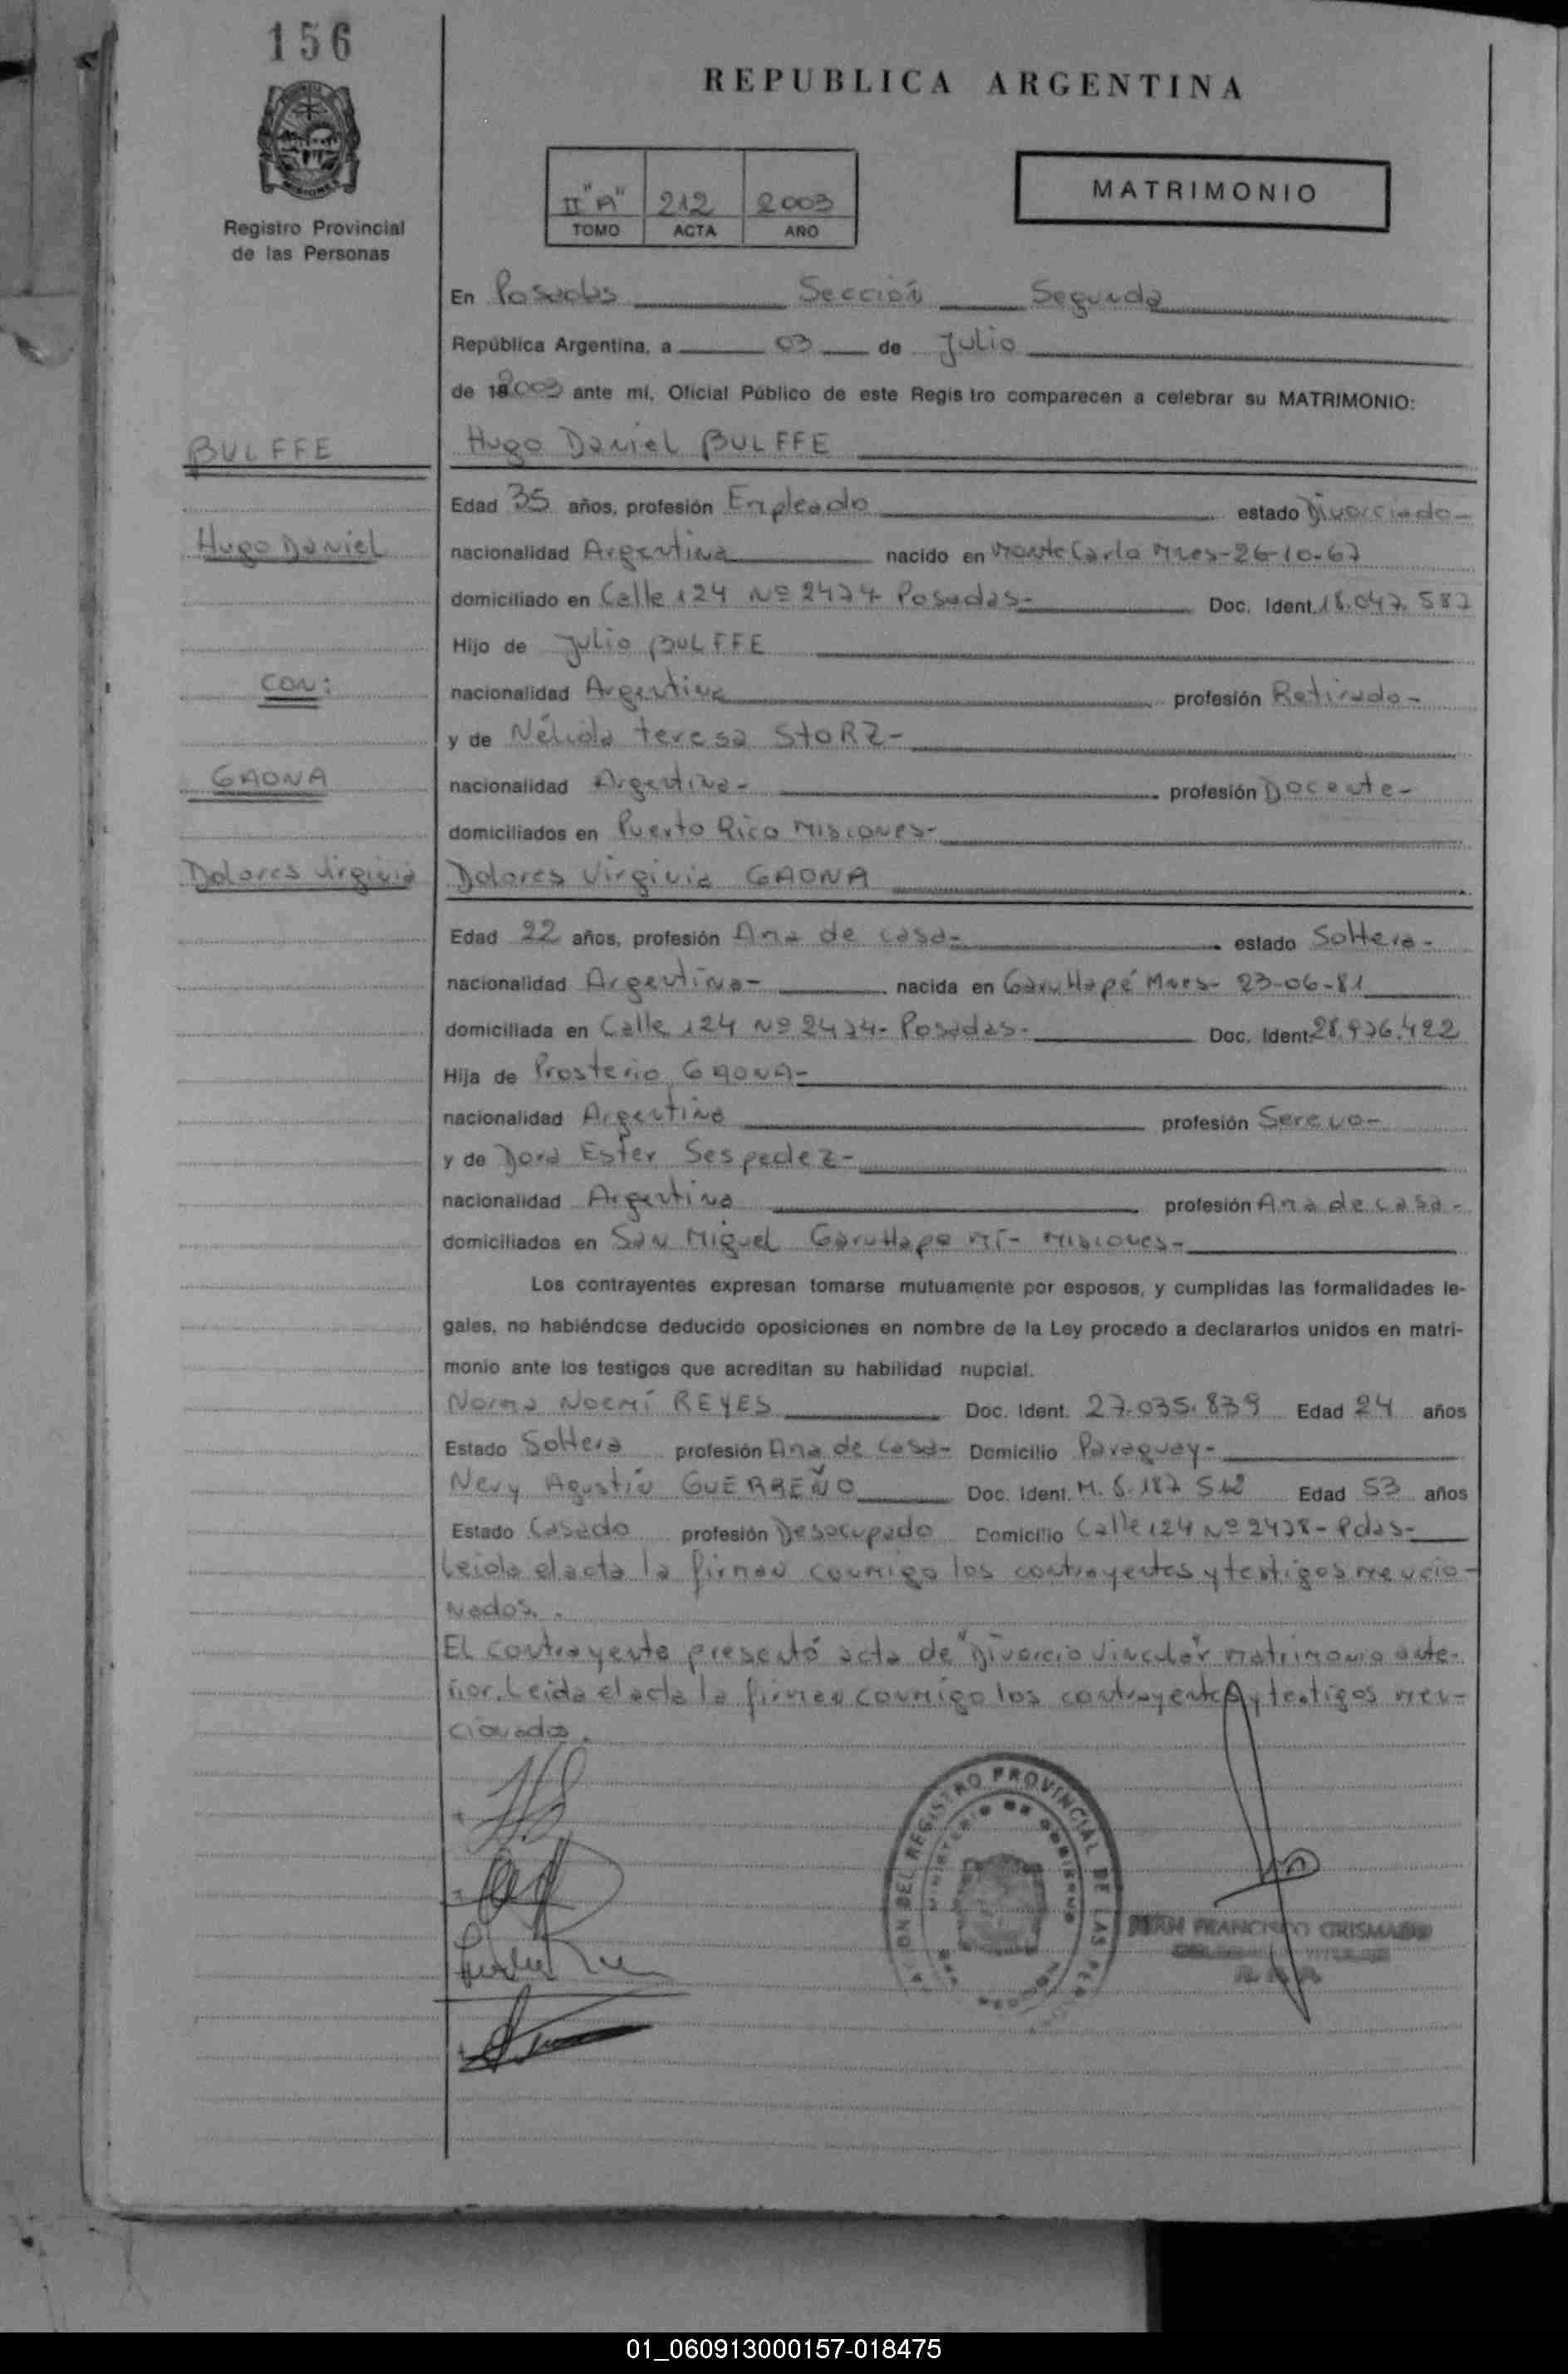 156
REPUBLICA ARGENTINA
II "A" 212 2003
TOMO ACTA AÑO
MATRIMONIO
Registro Provincial
de las Personas
En Posadas Sección Segunda
República Argentina, a 03 de Julio
de 2003 ante mí, Oficial Público de este Regis tro comparecen a celebrar su MATRIMONIO:
BULFFE
Hugo Daniel BULFFE
Edad 35 años, profesión Empleado estado Divorciado-
Hugo Daniel
nacionalidad Argentina nacido en Monte Carlo Mnes-26-10-67
domiciliado en Calle 124 Nº 2474 Posadas- Doc. Ident. 18.047.587
Hijo de Julio BULFFE
CON:
nacionalidad Argentina profesión Retirado-
y de Nélida teresa StORZ-
GAONA
nacionalidad Argentina- profesión Docente-
domiciliados en Puerto Rico Misiones-
Dolores Virginia
Dolores Virginia GAONA
Edad 22 años, profesión Ama de casa- estado Soltera-
nacionalidad Argentina- nacida en Garuhapé Mnes- 23-06-81
domiciliada en Calle 124 Nº 2474- Posadas- Doc. Ident. 28.976.422
Hija de Prosterio GAONA-
nacionalidad Argentina profesión Sereno-
y de Dora Ester Sespedez-
nacionalidad Argentina profesión Ama de casa-
domiciliados en San Miguel Garuhape Mí- Misiones-
Los contrayentes expresan tomarse mutuamente por esposos, y cumplidas las formalidades le-
gales, no habiéndose deducido oposiciones en nombre de la Ley procedo a declararlos unidos en matri-
monio ante los testigos que acreditan su habilidad nupcial.
Norma Noemí REYES Doc. Ident. 27.035.839 Edad 24 años
Estado Soltera profesión Ama de casa- Domicilio Paraguay-
Nery Agustín GUERREÑO Doc. Ident. M. 8.187 512 Edad 53 años
Estado Casado profesión Desocupado Domicilio Calle 124 Nº 2478- Pdas-
Leida el acta la firman conmigo los contrayentes y testigos mencio-
nados.
El contrayente presentó acta de "Divorcio Vincular" matrimonio ante-
rior. Leida el acta la firman conmigo los contrayentes y testigos men-
cionados.
REGISTRO PROVINCIAL DE LAS
MINISTERIO DE GOBIERNO
FRANCISCO
01_060913000157-018475